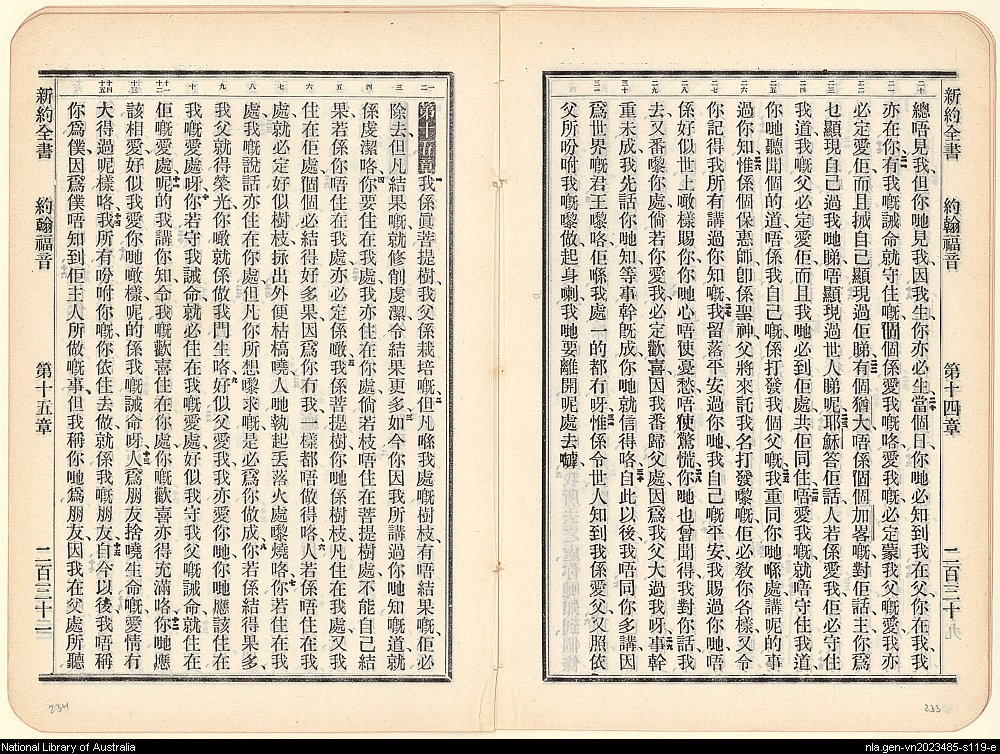 新約全書 約翰福音 第十四章 二百三十九
總唔見我、但你哋見我、因我生、你亦必生、當個日、你哋必知到我在父、你在我、我
亦在你、有我嘅誡命、就守住嘅、個個係愛我嘅咯、愛我嘅、必定蒙我父嘅愛、我亦
必定愛佢、而且𢬿自己顯現過佢睇、有個猶大、唔係個個加畧嘅、對佢話、主、你爲
乜顯現自己過我哋睇、唔顯現過世人睇呢、耶穌答佢話、人若係愛我、佢必守住
我道、我嘅父必定愛佢、而且我哋必到佢處、共佢同住、唔愛我嘅、就唔守住我道、
你哋聽聞個的道、唔係我自己嘅、係打發我個父嘅、我重同你哋喺處、講呢的事
過你知、惟係個保惠師、卽係聖神、父將來託我名打發嚟嘅、佢必敎你各樣、又令
你記得我所有講過你知嘅、我留落平安過你哋、我自己嘅平安、我賜過你哋、唔
係好似世上噉樣賜你、你哋心唔使憂愁、唔使驚慌、你哋也曾聞得我對你話、我
去又番嚟你處、倘若你愛我、必定歡喜、因我番歸父處、因爲我父大過我呀、事幹
重未成、我先話你哋知、等事幹旣成、你哋就信得咯、自此以後、我唔同你多講、因
爲世界嘅君王嚟咯、佢喺我處一的都冇呀、惟係令世人知到我係愛父、父照依
父所吩咐我嘅嚟做、起身喇、我哋要離開呢處去
第十五章 我係眞菩提樹、我父係栽培嘅、但凡喺我處嘅樹枝、有唔結果嘅、佢必
除去、但凡結果嘅、就修削虔潔、令結果更多、如今你因我所講過你哋知嘅道、就
係虔潔咯、你要住在我處、我亦住在你處、倘若枝唔住在菩提樹處、不能自己結
果、若係你唔住在我處、亦必定係噉、我係菩提樹、你哋係樹枝、凡住在我處、又我
住在佢處、個個必結得好多果、因爲你冇我、一樣都唔做得咯、人若係唔住在我
處、就必定好似樹枝掞出外便、枯槁嘵、人哋執起、丟落火處嚟燒咯、你若住在我
處、我嘅說話亦住在你處、但凡你所想嚟求嘅、是必爲你做成、你若係結得果多、
我父就得榮光、你噉就係做我門生咯、好似父愛我、我亦愛你哋、你哋應該住在
我嘅愛處呀、你若守我誡命、就必住在我嘅愛處、好似我守我父嘅誡命、就住在
佢嘅愛處、呢的我講你知、令我嘅歡喜住在你處、你嘅歡喜亦得充滿咯、你哋應
該相愛、好似我愛你哋噉樣、呢的係我嘅誡命呀、人爲朋友捨嘵生命嘅、愛情有
大得過呢樣咯、我所有吩咐你嘅、你依住去做、就係我嘅朋友、自今以後、我唔稱
你爲僕、因爲僕唔知到佢主人所做嘅事、但我稱你哋爲朋友、因我在父處所聽
新約全書 約翰福音 第十五章 二百三十二
234
233
National Library of Australia
nla.gen-vn2023485-s119-e